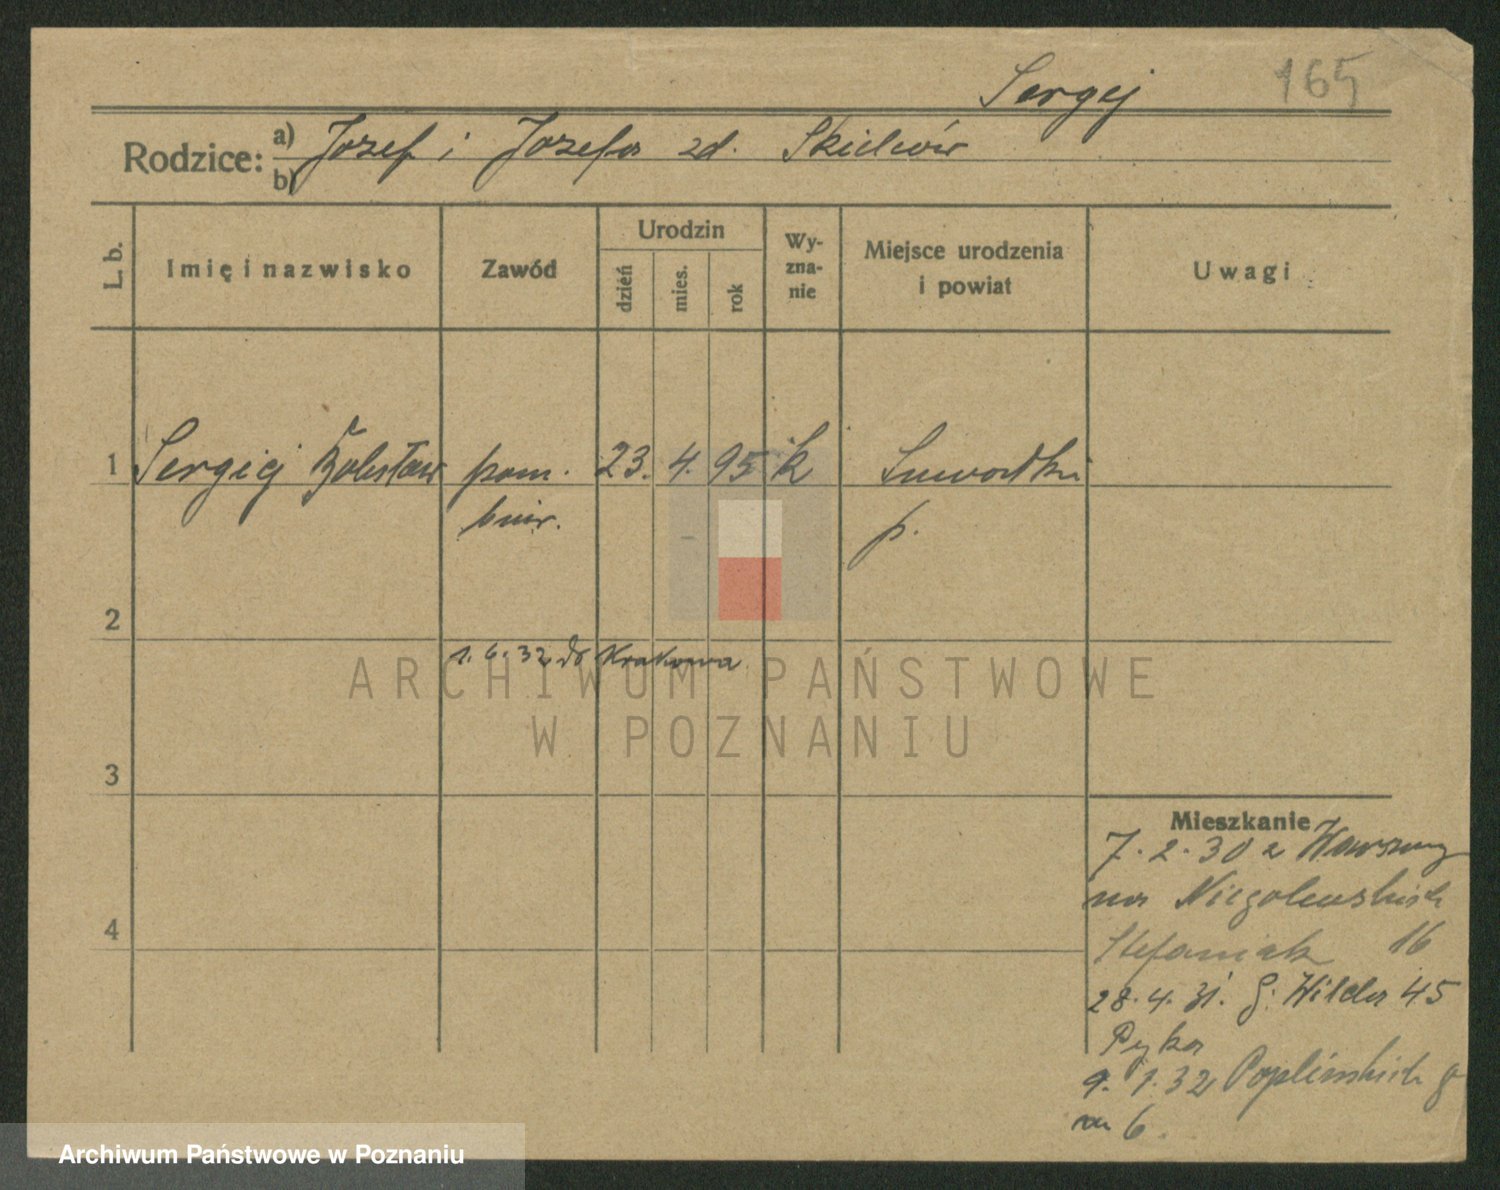 Sergej 165
Rodzice: a) Jozef i Jozefa zd.
b)
L. b.
Imię i nazwisko
Zawód
Urodzin
dzień
mies.
rok
Wy-
zna-
nie
Miejsce urodzenia
i powiat
Uwagi
1 Sergiej Bolesław pom. 23. 4. 95 k Suwałki
biur. p.
2
1. 6. 32 do Krakowa
ARCHIWUM PAŃSTWOWE
W POZNANIU
3
Mieszkanie
7. 2. 30 z Warszawy
na Niegolewskich
4
Stefaniak 16
28. 4. 31. G. Wilda 45
Pyka
9. 1. 32 Poplińskich 9
m 6.
Archiwum Państwowe w Poznaniu